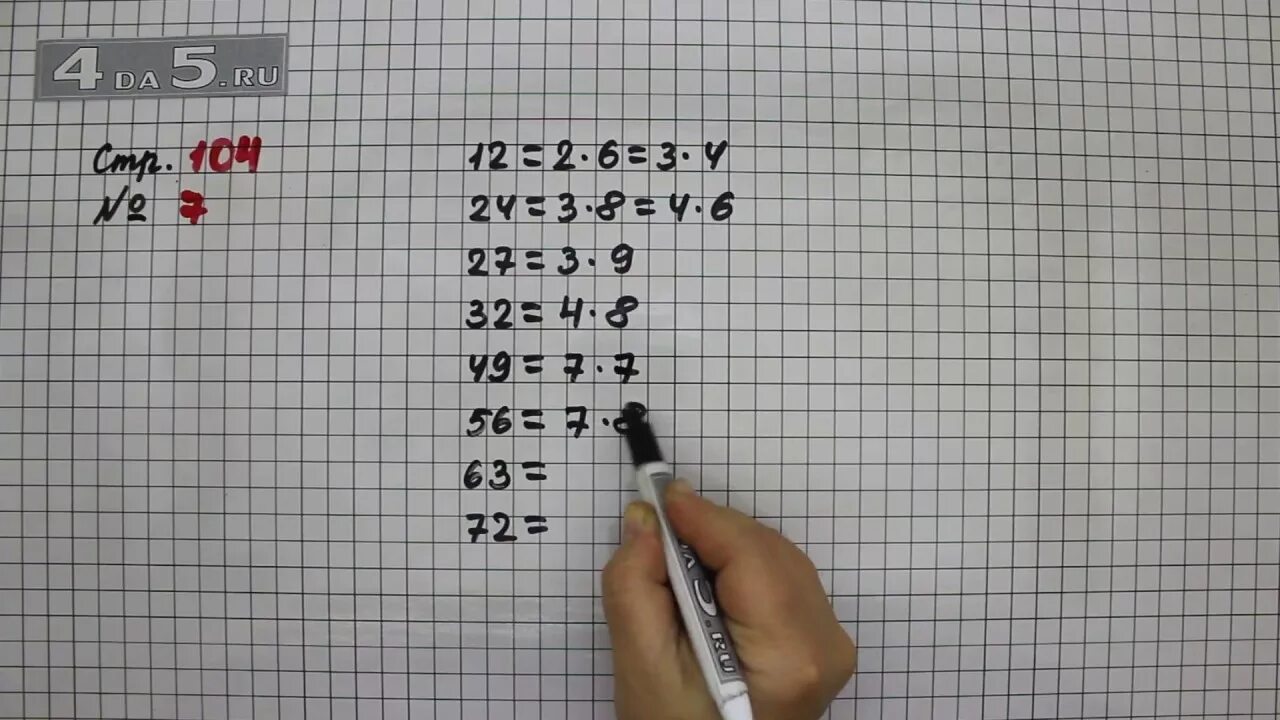 4DA5.RU
Стр. 104
№ 7
12 = 2 · 6 = 3 · 4
24 = 3 · 8 = 4 · 6
27 = 3 · 9
32 = 4 · 8
49 = 7 · 7
56 = 7 · 8
63 =
72 =